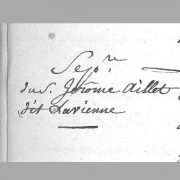 Sep.re
du S. Jérôme Aillet
dit Lavienne